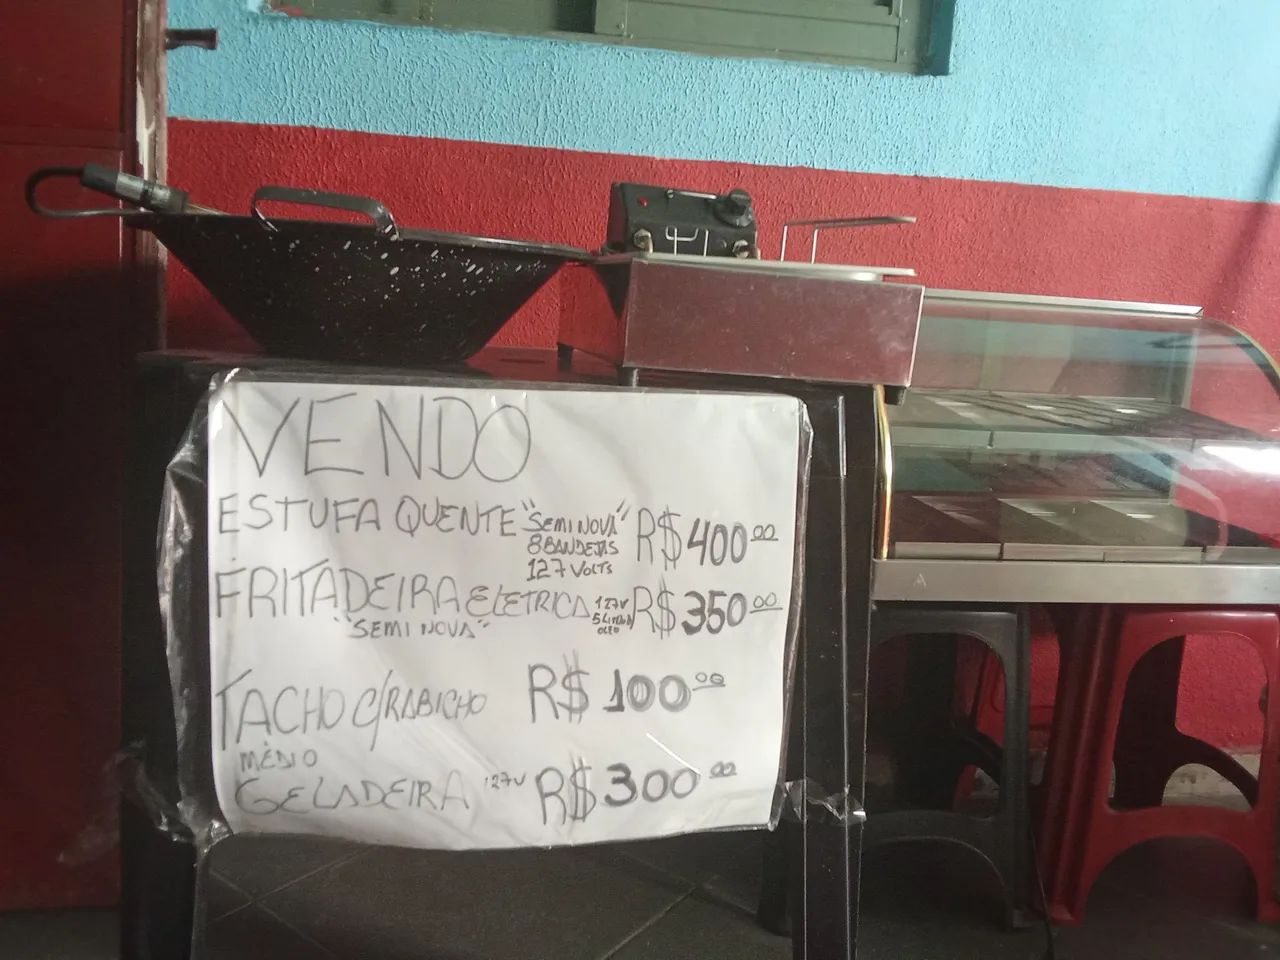 VENDO
ESTUFA QUENTE "SEMI NOVA" R$ 400,00
8 BANDEJAS
127 VOLTS
FRITADEIRA ELETRICA 127V R$ 350,00
5 LITROS
OLEO
"SEMI NOVA"
TACHO C/RABICHO R$ 100,00
MÉDIO
GELADEIRA 127V R$ 300,00